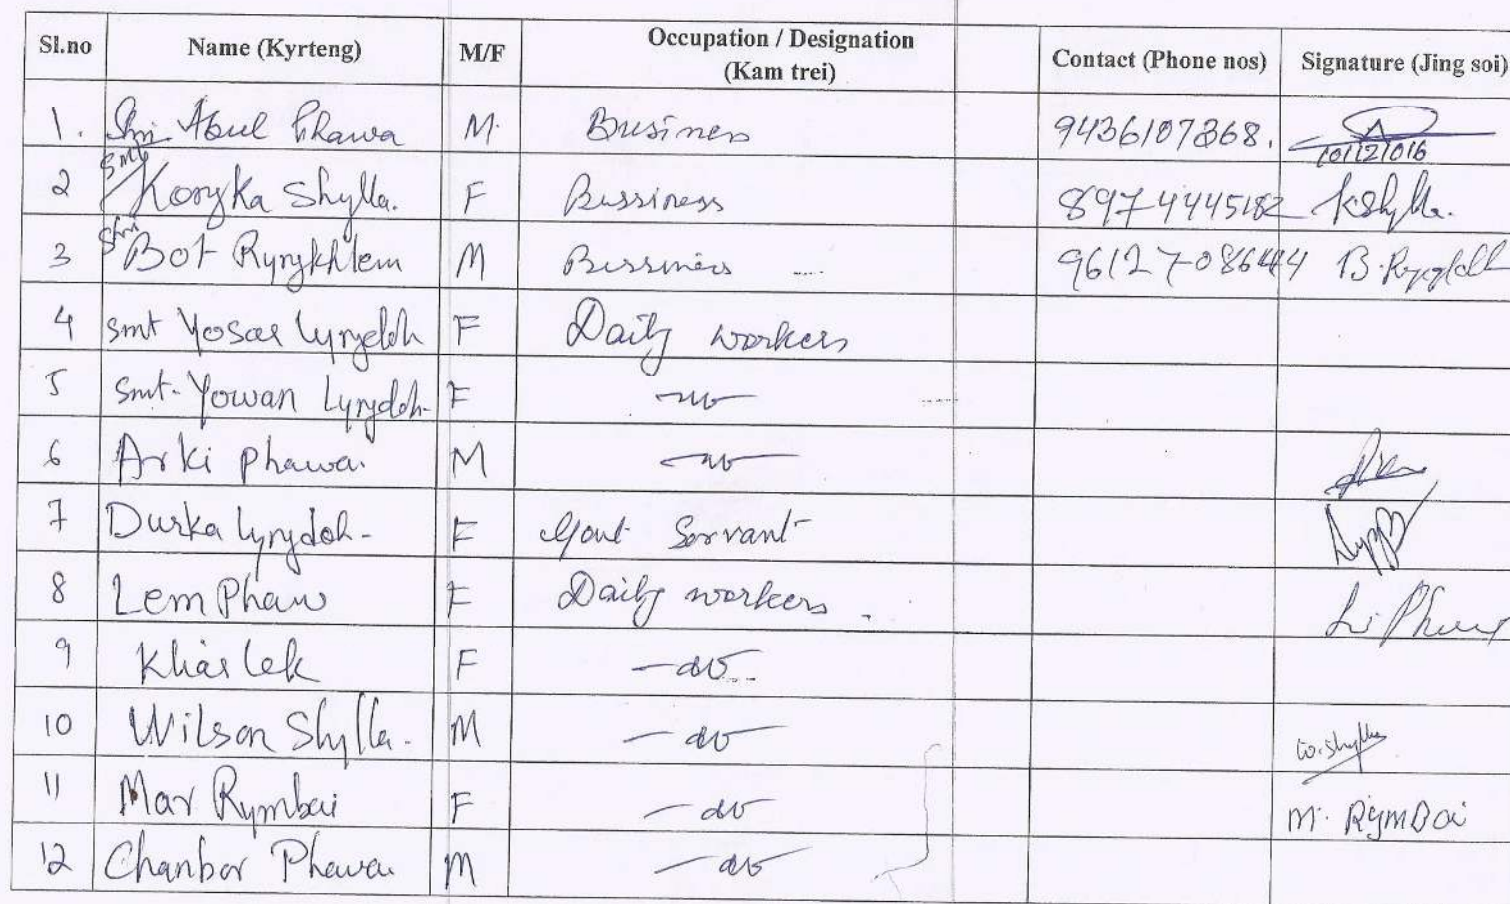 Sl.no Name (Kyrteng) M/F Occupation / Designation (Kam trei) Contact (Phone nos) Signature (Jing soi)
1. Shri Abul Phawa M. Busines 9436107868.
2 Smt Konyka Shylla. F Bussiness 8974445182 KShylla.
3 Shri Bot Rynykhlem M Bussiness 9612708644
4 Smt Yosar Lyngdoh F Daily workers
5 Smt. Yowan Lyngdoh F —do—
6 Arki Phawa. M —do—
7 Durka Lyngdoh - F Govt Servant
8 Lem Phaw F Daily workers.
9 F —do—
10 Wilson Shylla. M —do— W. Shylla
11 Mar Rymbai F —do— M. RymBai
12 Chanbor Phawa. M —do—